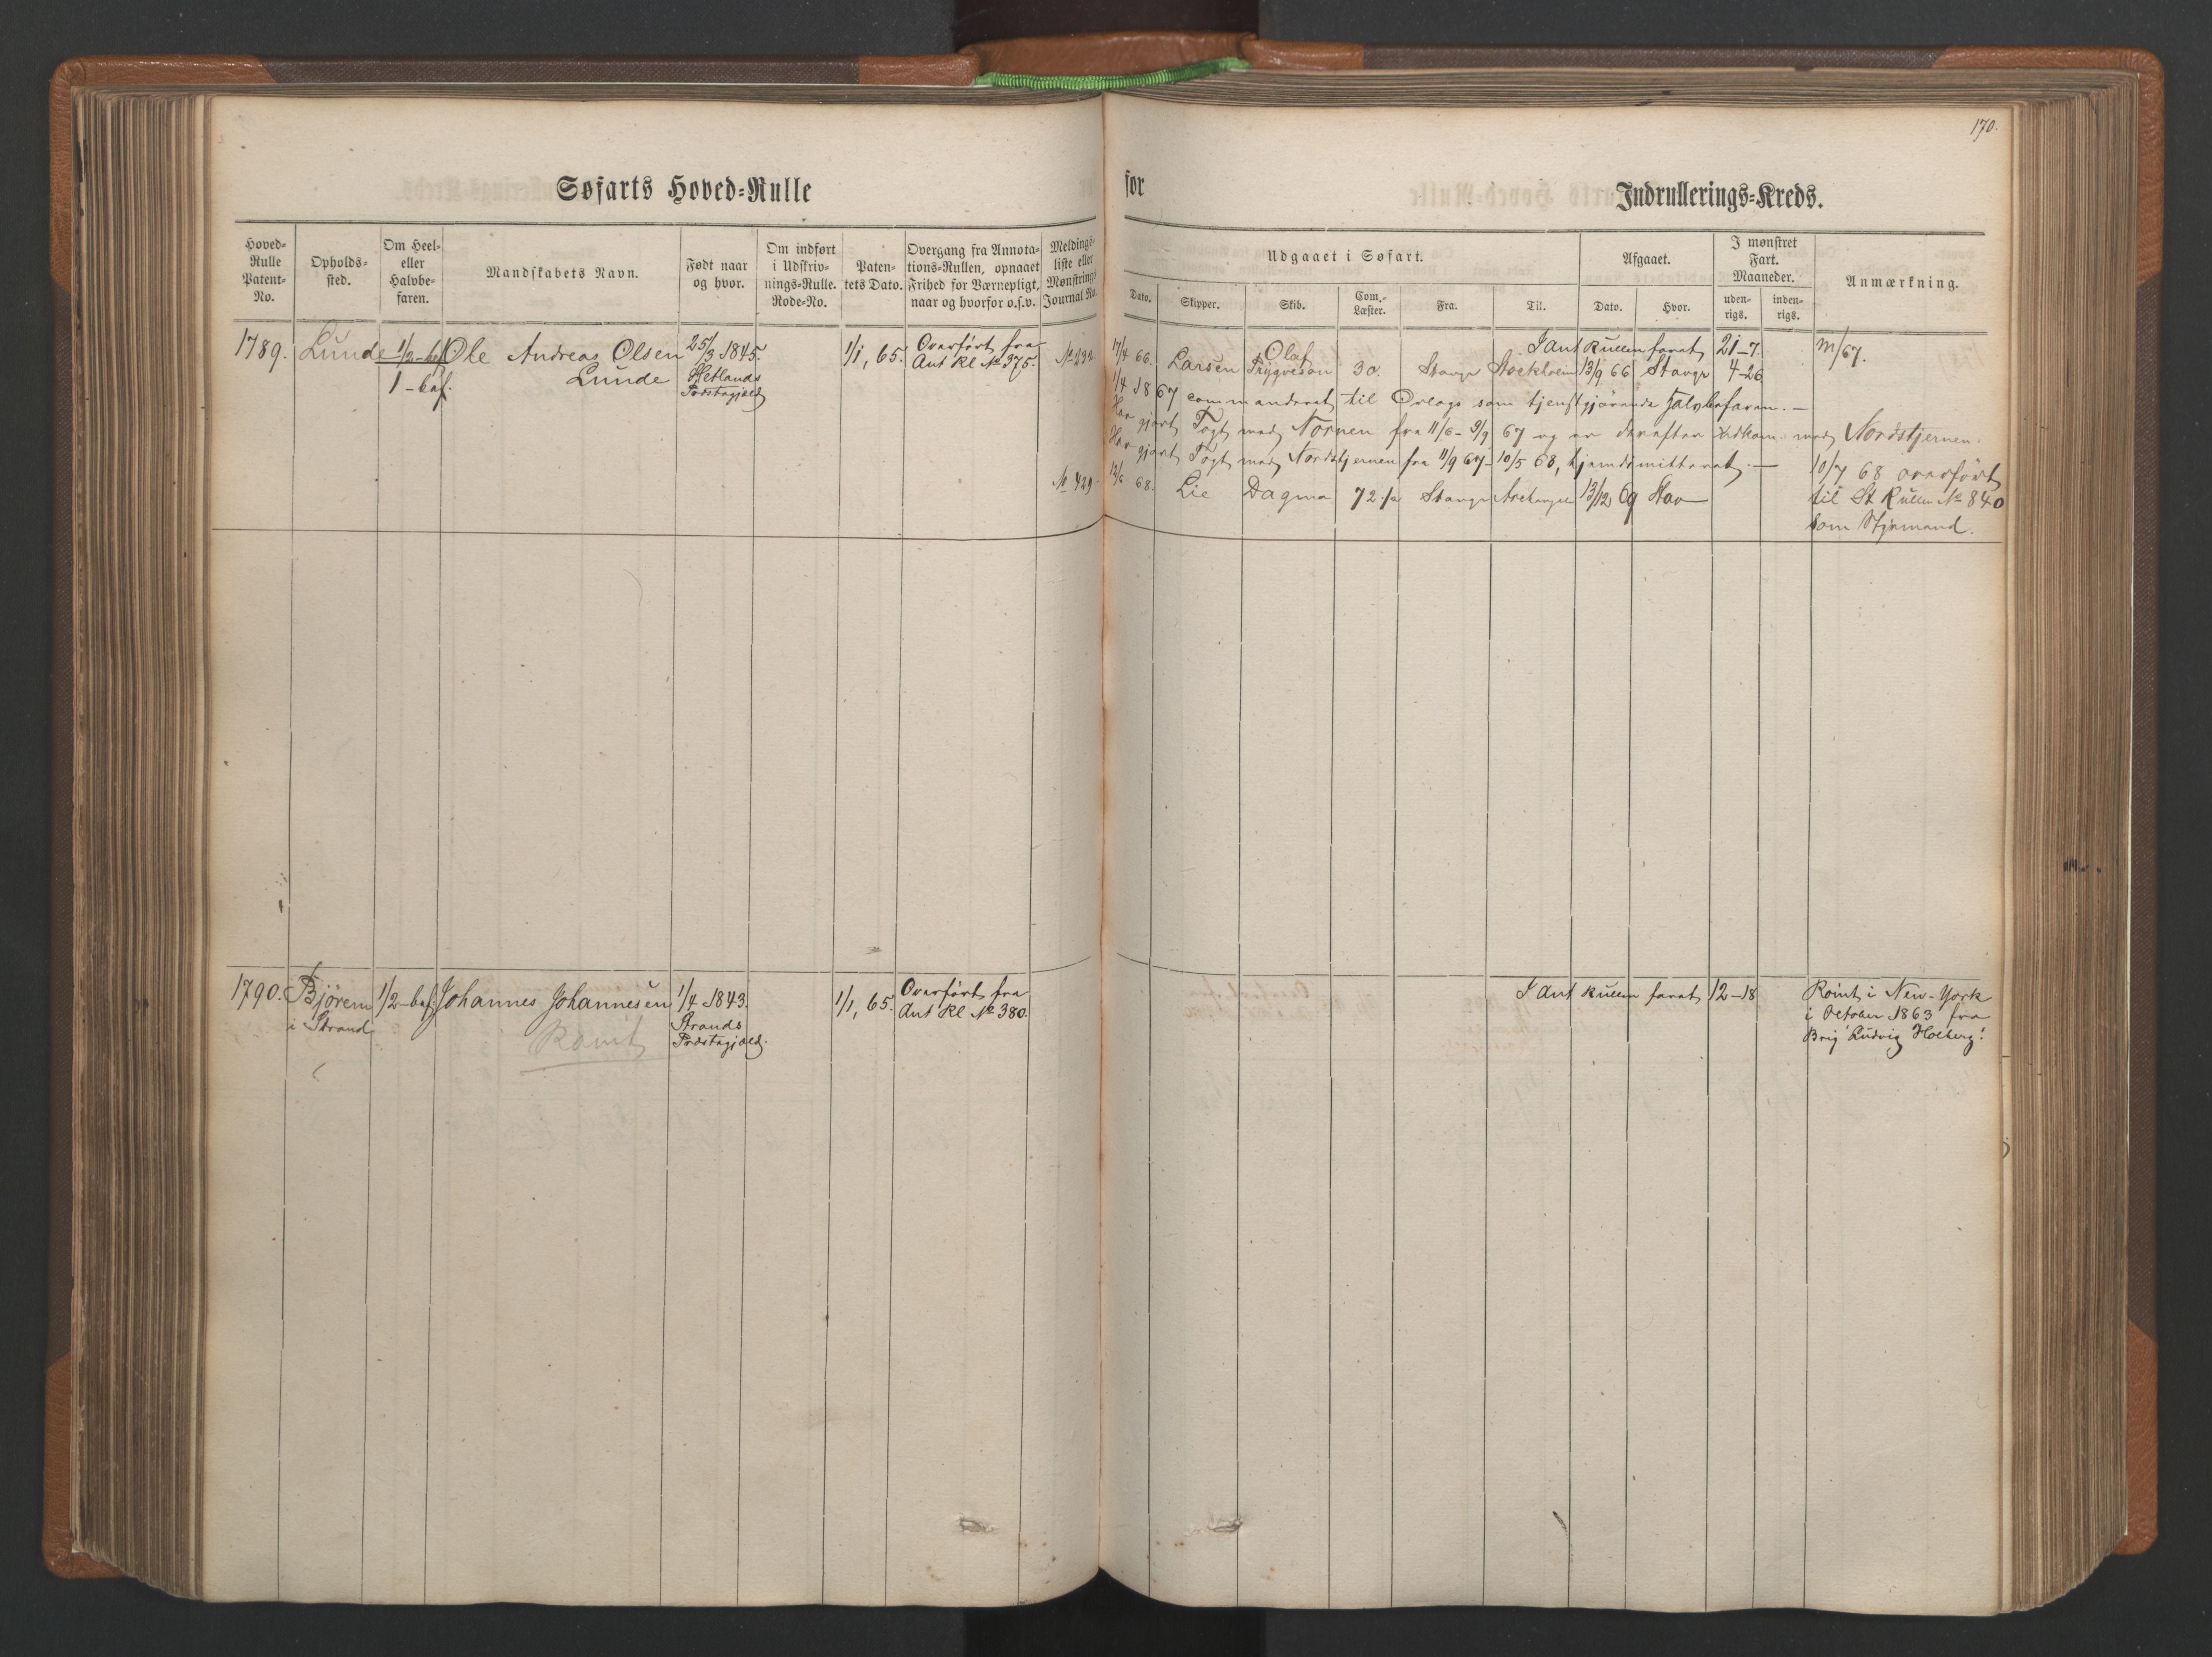 170.
Søfarts Hoved-Rulle
for
Indrullerings-Kreds.
Hoved-Rulle Patent-No.
Opholds-sted.
Om Heel- eller Halvbe-faren.
Mandskabets Navn.
Født naar og hvor.
Om indført i Udskriv-nings-Rulle. Rode-No.
Paten-tets Dato.
Overgang fra Annota-tions-Rullen, opnaaet Frihed for Værnepligt, naar og hvorfor o.s.v.
Meldings-liste eller Mønstrings Journal No.
Udgaaet i Søfart.
Dato.
Skipper.
Skib.
Com.-Læster.
Fra.
Til.
Afgaaet.
Dato.
Hvor.
I mønstret Fart. Maaneder.
uden-rigs.
inden-rigs.
Anmærkning.
1789. Lunde 1/2-bef Ole Andreas Olsen 25/3 1845. 1/1, 65. Overført fra
1-bef. Lunde Hetlands Præstegjæld Ant Rl № 375. № 232
I Ant Rullen faret 21-7. m/67.
17/4 66. Larsen Olaf Trygveson 30. Stavgr Stockholm 13/9 66 Stavgr 4-26
1/4 1867 commanderet til Orlogs som tjenstgjørende Halvbefaren. —
Har gjort Togt med Nornen fra 11/6 - 9/9 67 og er derefter udkom. med Nordstjernen.
Har gjort Togt med Nordstjernen fra 11/9 67 - 10/5 68, hjemdimitteret. —
№ 429 12/6 68. Lie Dagmar 72 1/2 Stavgr Archangel 13/12 69 Hav
10/7 68 overført
til St Rullen № 840
som Styrmand.
1790. Bjørem 1/2-bef Johannes Johannesen 1/4 1843. 1/1, 65. Overført fra
i Strand Strands Præstegjæld. Ant Rl № 380.
Rømt
I Ant Rullen faret 12-18
Rømt i New-York
i October 1863 fra
Brig "Ludvig Holberg".